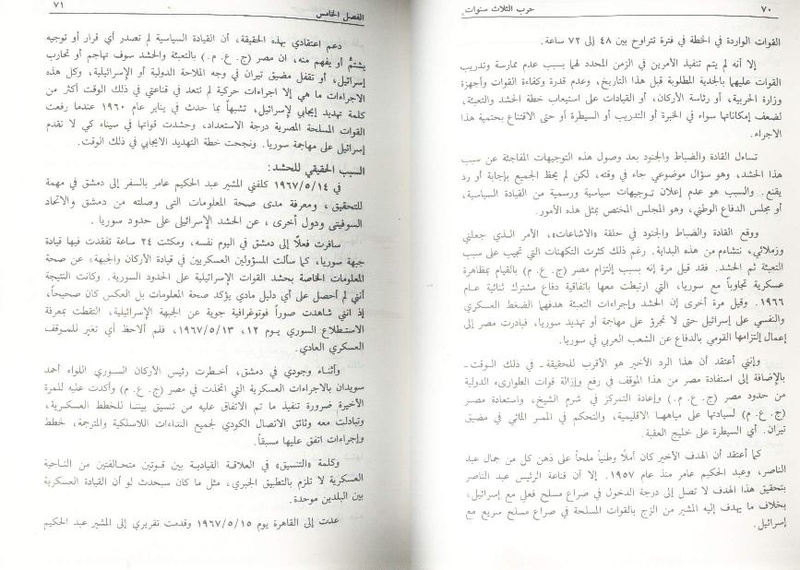 ٧٠
حرب الثلاث سنوات
القوات الواردة في الخطة في فترة تتراوح بين ٤٨ إلى ٧٢ ساعة.
إلا أنه لم يتم تنفيذ الأمرين في الزمن المحدد لهما بسبب عدم ممارسة وتدريب
القوات عليهما بالجدية المطلوبة قبل هذا التاريخ، وعدم قدرة وكفاءة القوات وأجهزة
وزارة الحربية، أو رئاسة الأركان، أو القيادات على استيعاب خطة الحشد والتعبئة،
لضعف إمكاناتها سواء في الخبرة أو التدريب أو السيطرة أو حتى الاقتناع بحتمية هذا
الاجراء.
تساءل القادة والضباط والجنود بعد وصول هذه التوجيهات المفاجئة عن سبب
هذا الحشد، وهو سؤال موضوعي جاء في وقته، لكن لم يحظ الجميع بإجابة أو رد
يقنع. والسبب هو عدم إعلان توجيهات سياسية ورسمية من القيادة السياسية،
أو مجلس الدفاع الوطني، وهو المجلس المختص بمثل هذه الأمور.
ووقع القادة والضباط والجنود في حلقة «الاشاعات»، الأمر الذي جعلني
وزملائي، نتشاءم من هذه البداية. رغم ذلك كثرت التكهنات التي تجيب على سبب
التعبئة ثم الحشد. فقد قيل مرة إنه بسبب إلتزام مصر (ج. ع. م) بالقيام بمظاهرة
عسكرية تجاوباً مع سوريا، التي ارتبطت معها باتفاقية دفاع مشترك ثنائية عام
١٩٦٦. وقيل مرة أخرى إن الحشد وإجراءات التعبئة هدفهما الضغط العسكري
والنفسي على إسرائيل حتى لا تجرؤ على مهاجمة أو تهديد سوريا، فبادرت مصر إلى
إعمال إلتزامها القومي بالدفاع عن الشعب العربي في سوريا.
وإنني أعتقد أن هذا الرد الأخير هو الأقرب للحقيقة - في ذلك الوقت -
بالإضافة إلى استفادة مصر من هذا الموقف في رفع وإزالة قوات الطوارىء الدولية
من حدود مصر (ج. ع. م) وإعادة التمركز في شرم الشيخ، واستعادة مصر
(ج. ع. م) لسيادتها على مياهها الاقليمية، والتحكم في الممر المائي في مضيق
تيران. أي السيطرة على خليج العقبة.
كما أعتقد أن الهدف الأخير كان أملاً وطنياً ملحاً على ذهن كل من جمال عبد
الناصر، وعبد الحكيم عامر منذ عام ١٩٥٧. إلا أن قناعة الرئيس عبد الناصر
بتحقيق هذا الهدف لا تصل إلى درجة الدخول في صراع مسلح فعلي مع إسرائيل،
بخلاف ما يهدف إليه المشير من الزج بالقوات المسلحة في صراع مسلح سريع مع
إسرائيل.
الفصل الخامس
٧١
دعم اعتقادي بهذه الحقيقة، أن القيادة السياسية لم تصدر أي قرار أو توجيه
يشتم أو يفهم منه، ان مصر (ج. ع. م.) بالتعبئة والحشد سوف تهاجم أو تحارب
إسرائيل، أو تقفل مضيق تيران في وجه الملاحة الدولية أو الإسرائيلية، وكل هذه
الاجراءات ما هي إلا اجراءات حركية لم تتعد في قناعتي في ذلك الوقت أكثر من
كلمة تهديد إيجابي لإسرائيل، تشبهاً بما حدث في يناير عام ١٩٦٠ عندما رفعت
القوات المسلحة المصرية درجة الاستعداد، وحشدت قواتها في سيناء كي لا تقدم
إسرائيل على مهاجمة سوريا. ونجحت خطة التهديد الايجابي في ذلك الوقت.
السبب الحقيقي للحشد:
في ١٩٦٧/٥/١٤ كلفني المشير عبد الحكيم عامر بالسفر إلى دمشق في مهمة
للتحقيق، ومعرفة مدى صحة المعلومات التي وصلته من دمشق والاتحاد
السوفيتي ودول أخرى، عن الحشد الإسرائيلي على حدود سوريا.
سافرت فعلاً إلى دمشق في اليوم نفسه، ومكثت ٢٤ ساعة تفقدت فيها قيادة
جبهة سوريا، كما سألت المسؤولين العسكريين في قيادة الأركان والجبهة، عن صحة
المعلومات الخاصة بحشد القوات الإسرائيلية على الحدود السورية. وكانت النتيجة
أنني لم أحصل على أي دليل مادي يؤكد صحة المعلومات بل العكس كان صحيحاً،
إذ انني شاهدت صوراً فوتوغرافية جوية عن الجبهة الإسرائيلية، التقطت بمعرفة
الاستطلاع السوري يوم ١٢، ١٩٦٧/٥/١٣، فلم ألاحظ أي تغير للموقف
العسكري العادي.
وأثناء وجودي في دمشق، أخطرت رئيس الأركان السوري اللواء أحمد
سويدان بالاجراءات العسكرية التي اتخذت في مصر (ج. ع. م) وأكدت عليه للمرة
الأخيرة ضرورة تنفيذ ما تم الاتفاق عليه من تنسيق بيننا للخطط العسكرية،
وتبادلت معه وثائق الاتصال الكودي لجميع النداءات اللاسلكية والمترجمة، خطط
وإجراءات اتفق عليها مسبقاً.
وكلمة «التنسيق» في العلاقة القيادية بين قوتين متحالفتين من الناحية
العسكرية لا تلزم بالتطبيق الجبري، مثل ما كان سيحدث لو أن القيادة العسكرية
بين البلدين موحدة.
عدت إلى القاهرة يوم ١٩٦٧/٥/١٥ وقدمت تقريري إلى المشير عبد الحكيم